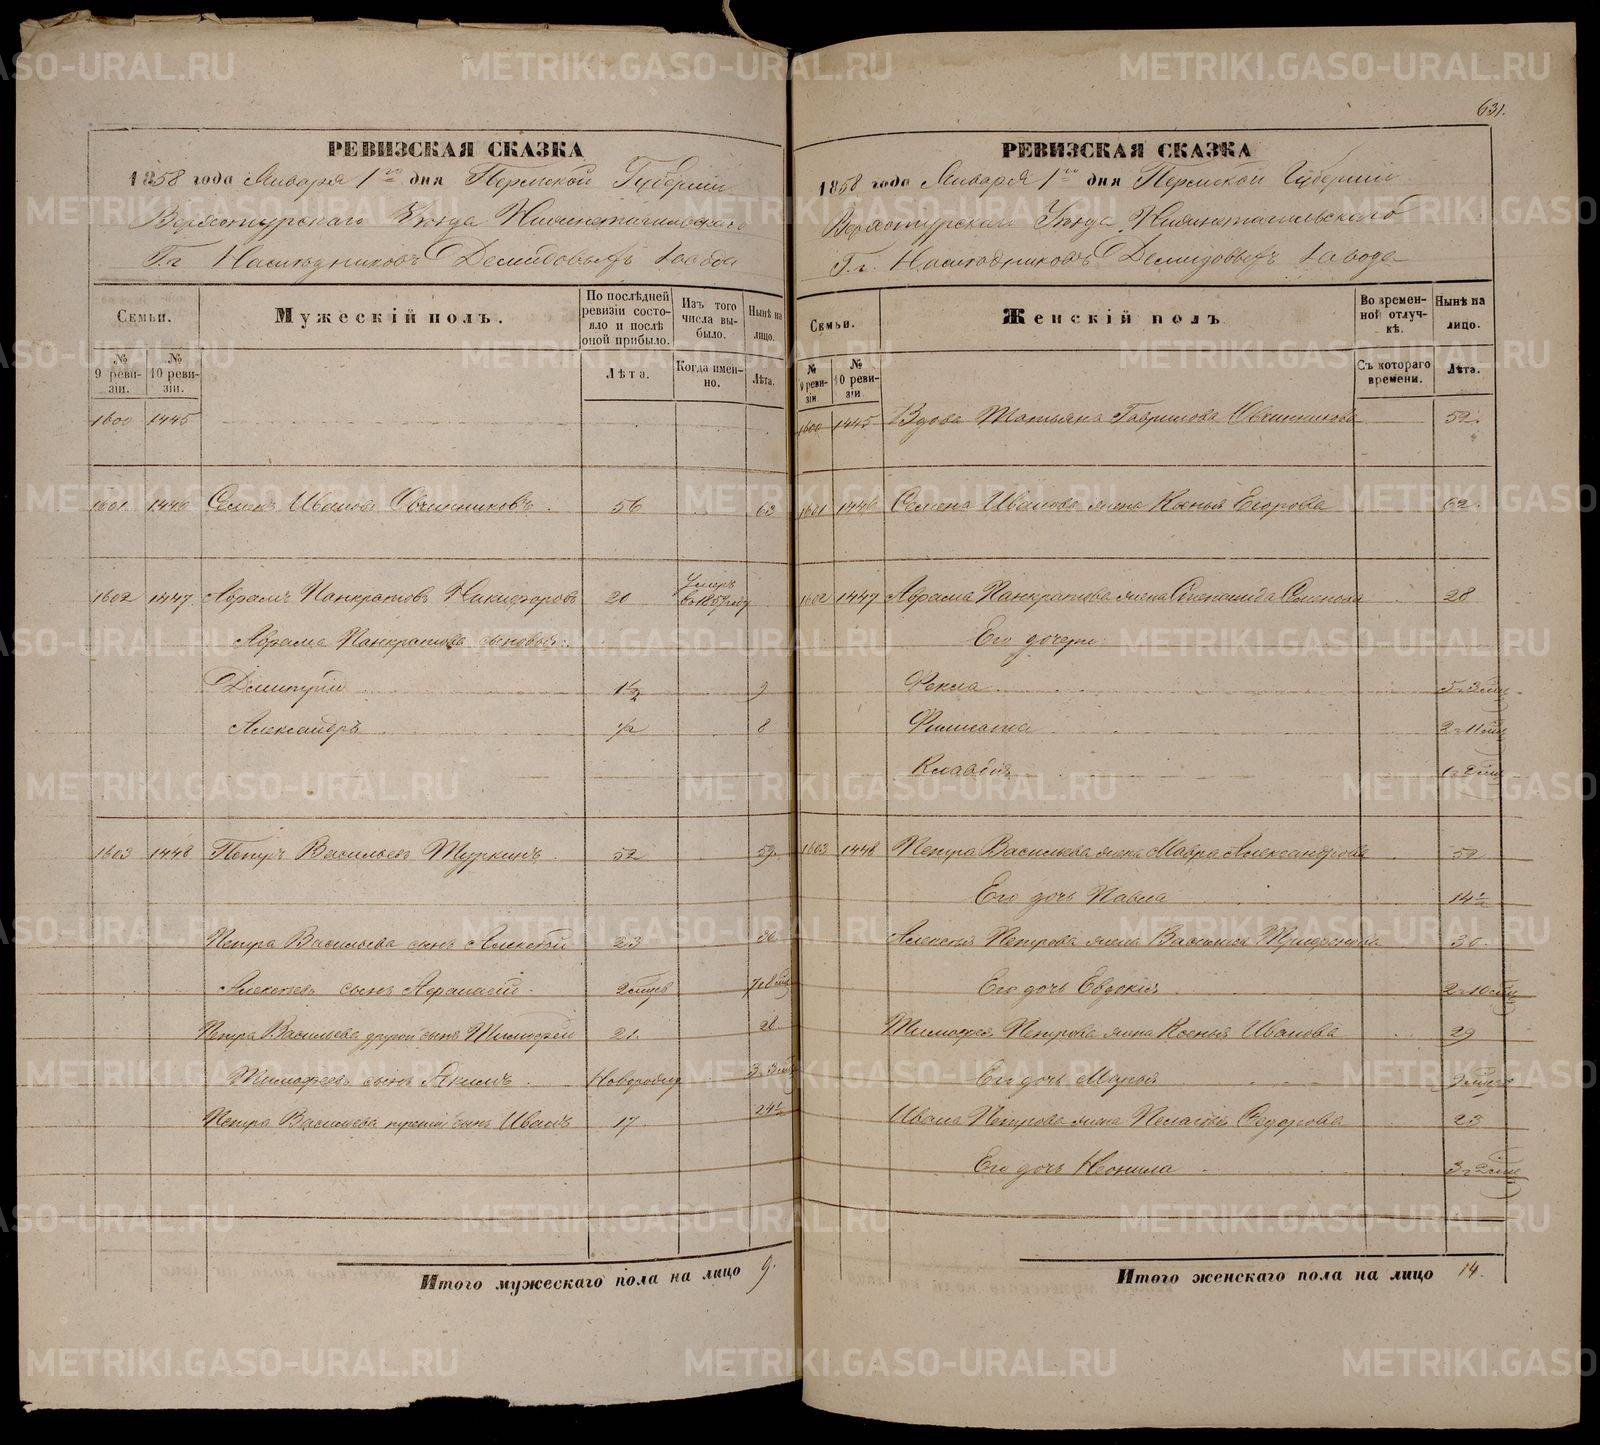 631.
РЕВИЗСКАЯ СКАЗКА
1858 года Января 1го дня Пермской Губерніи
Верхотурскаго Уѣзда Нижнетагильскаго
Г.г. Наслѣдниковъ Демидовыхъ завода
Семьи.
Мужескій полъ.
По послѣдней ревизіи состояло и послѣ оной прибыло.
Изъ того числа выбыло.
Нынѣ на лицо.
№ 9 ревизіи.
№ 10 ревизіи.
Лѣта.
Когда именно.
Лѣта.
1600 1445
1601 1446 Семенъ Ивановъ Овчинниковъ 56 63
1602 1447 Абрамъ Панкратовъ Никифоровъ 20 Умеръ въ 1857 году
Абрама Панкратова сыновья:
Дмитрій 1½ 9
Александръ ½ 8
1603 1448 Петръ Васильевъ Шуркинъ 52 59
Петра Васильева сынъ Алексѣй 23 30
Алексѣевъ сынъ Афанасій 2 мѣсяц 7 г. 8 мѣс
Петра Васильева другой сынъ Тимофей 21 28
Тимофеевъ сынъ Якимъ Новорожд 3 г. 3 мѣс
Петра Васильева третій сынъ Иванъ 17 24½
Итого мужескаго пола на лицо 9.
РЕВИЗСКАЯ СКАЗКА
1858 года Января 1го дня Пермской Губерніи
Верхотурскаго Уѣзда Нижнетагильскаго
Г.г. Наслѣдниковъ Демидовыхъ завода
Семьи.
Женскій полъ
Во временной отлучкѣ.
Нынѣ на лицо.
№ 9 ревизіи
№ 10 ревизіи
Съ котораго времени.
Лѣта.
1600 1445 Вдова Татьяна Гаврилова Овчинникова 52
1601 1446 Семена Иванова жена Ксенья Егорова 62
1602 1447 Абрама Панкратова жена Степанида Семенова 28
Его дочери:
Фекла 5 г. 3 мѣс
2 г. 11 мѣс
Клавдія 1 г. 2 мѣс
1603 1448 Петра Васильева жена Мавра Александрова 52
Его дочь Павла 14½
Алексѣя Петрова жена Василиса 30
Его дочь Евдокія 2 г. 10 мѣс
Тимофея Петрова жена Ксенья Иванова 29
Его дочь Марья
Ивана Петрова жена Пелагѣя Федорова 23
Его дочь Неонила 3 г. 2 мѣс
Итого женскаго пола на лицо 14.
METRIKI.GASO-URAL.RU